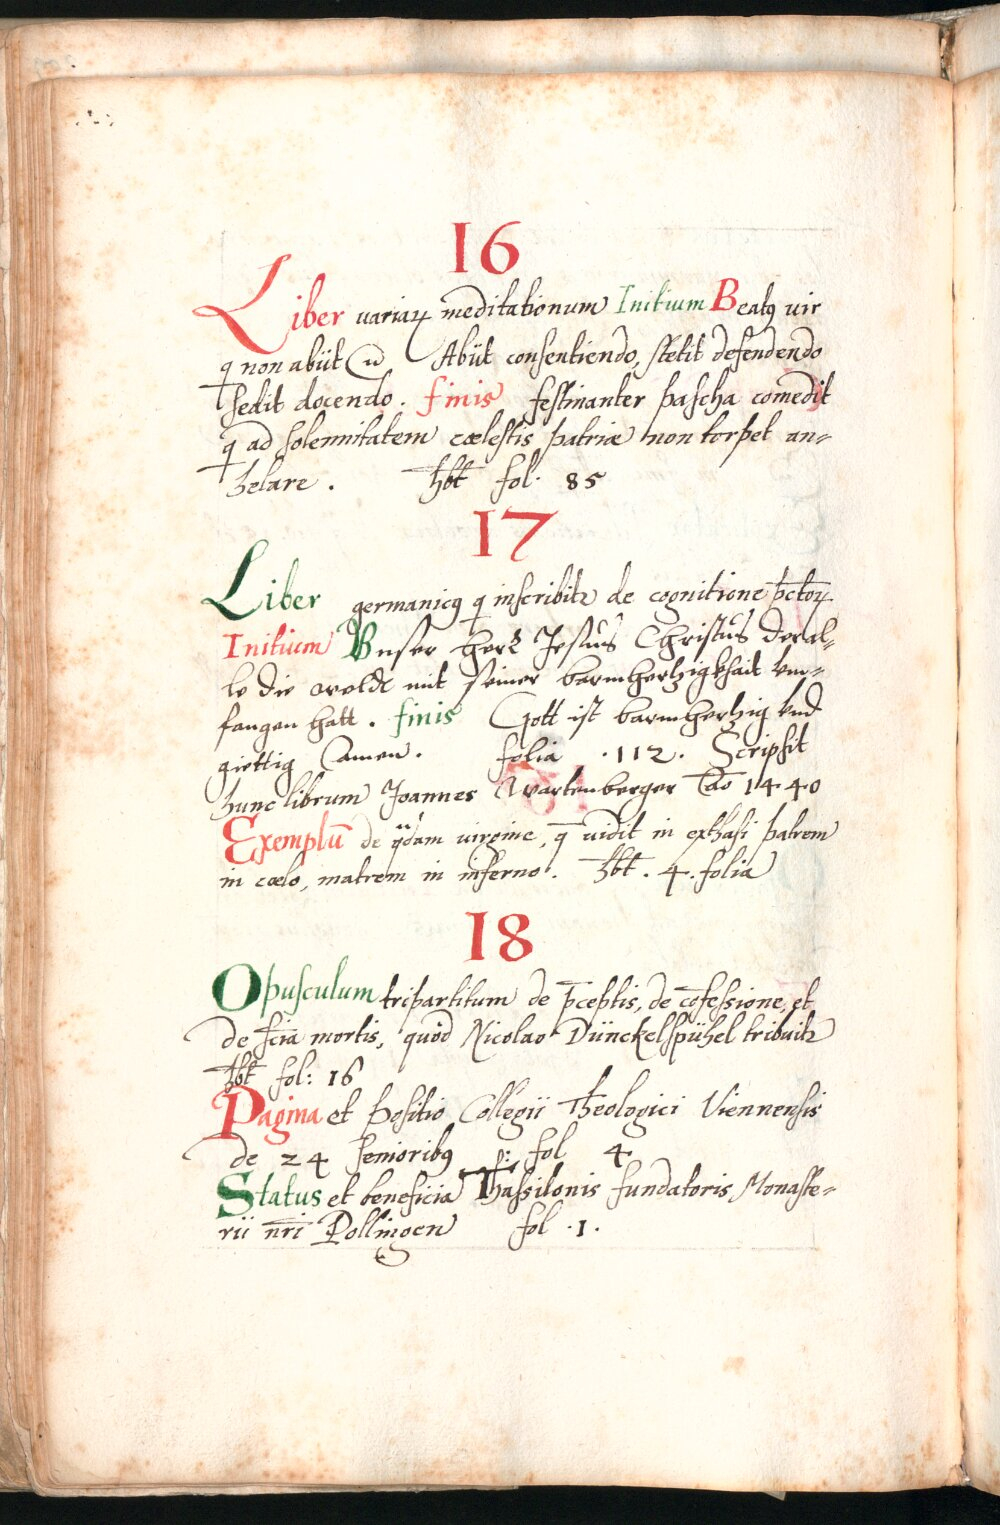 16
Liber variaꝝ meditationum Initium Beatꝯ vir
q̄ non abijt &c̄ Abijt consentiendo, stetit defendendo
sedit docendo. finis festinanter pascha comedit
q̄ ad solemnitatem cælestis patriæ non torpet an-
helare. Hb̄t fol. 85
17
Liber germanicꝯ q̄ inscribitr de cognitione p̄ctoꝝ
Initium Vnser herr Jesus Christus der al-
le die welde mit seiner barmhertzigkhait um-
fangen hatt. finis Gott ist barmhertzig vnd
giettig Amen. folia .112. Scripsit
hunc librum Joannes Wartenberger Aō 1440
Exemplū de q̈dam virgine, q̄ vidit in exthasi patrem
in cœlo, matrem in inferno. Hb̄t. 4. folia
18
Opusculum tripartitum de p̄ceptis, de cōfessione, et
de sc̄ia mortis, quod Nicolao Dünckelspühel tribuitr
Hb̄t fol: 16
Pagina et Positio Collegii Theologici Viennensis
de 24 senioribꝯ fol 4
Status et beneficia Thassilonis fundatoris Monaste-
rii nr̄i Pollingen fol .1.